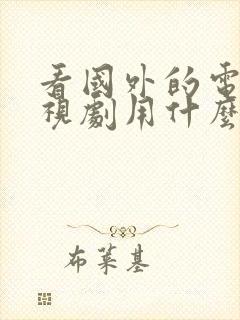 看國外的電
視劇用什麼
布萊基